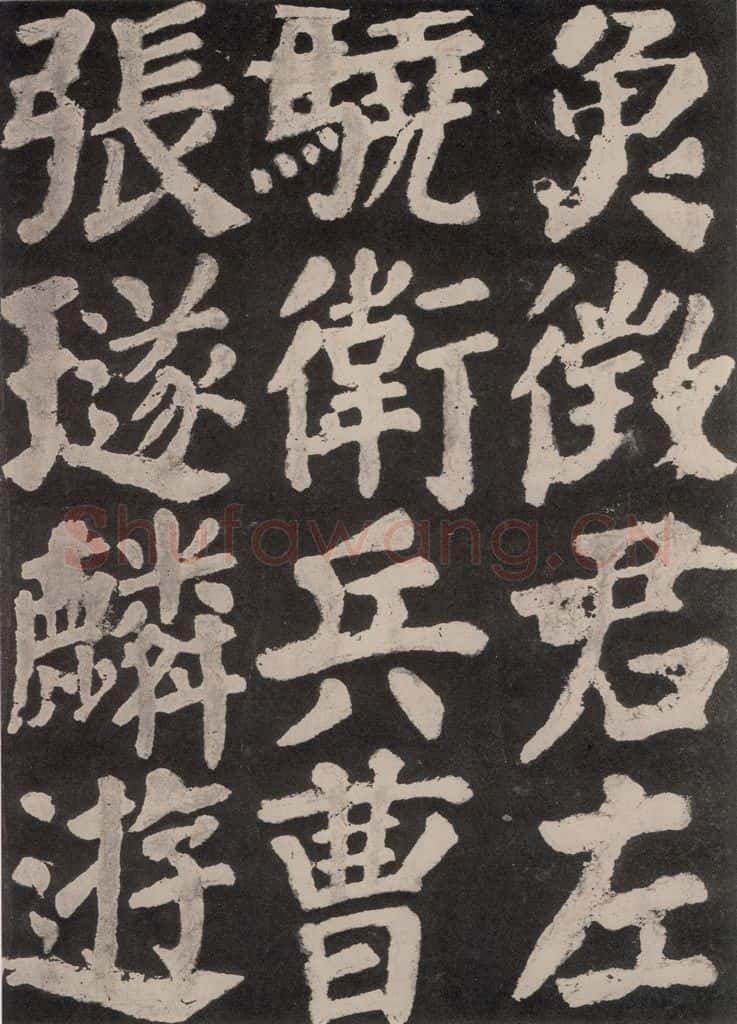 魚徵君左
驍衛兵曹
張璲麟遊
Shufawang.CN